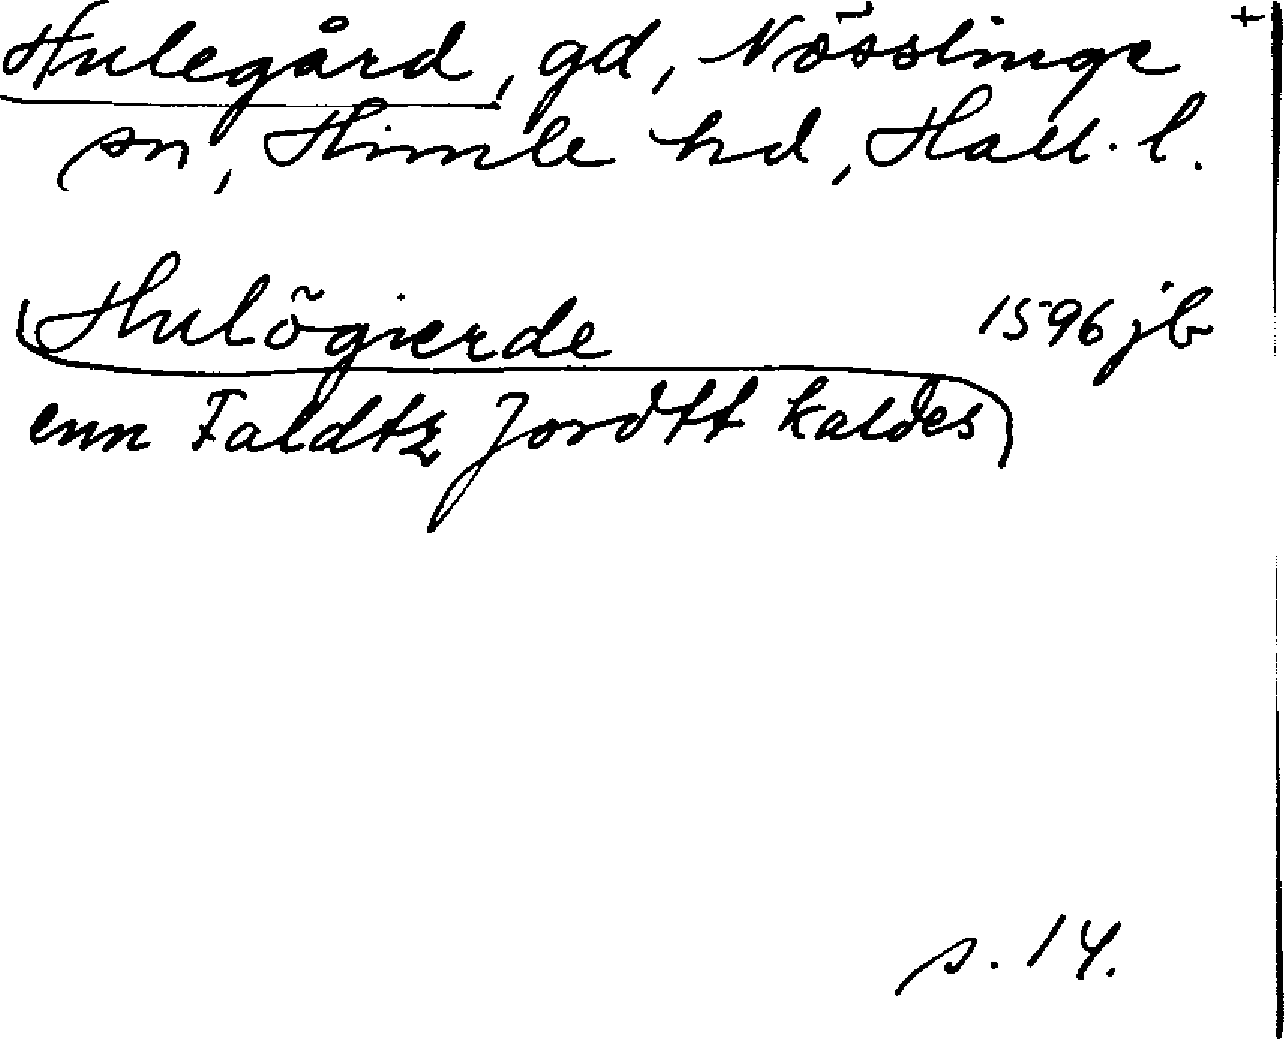 Hulegård, gd, Nösslinge +
sn, Himle hd, Hall. l.
Hulögierde 1596 jb
enn Faldtz Jordtt kaldes
s. 14.